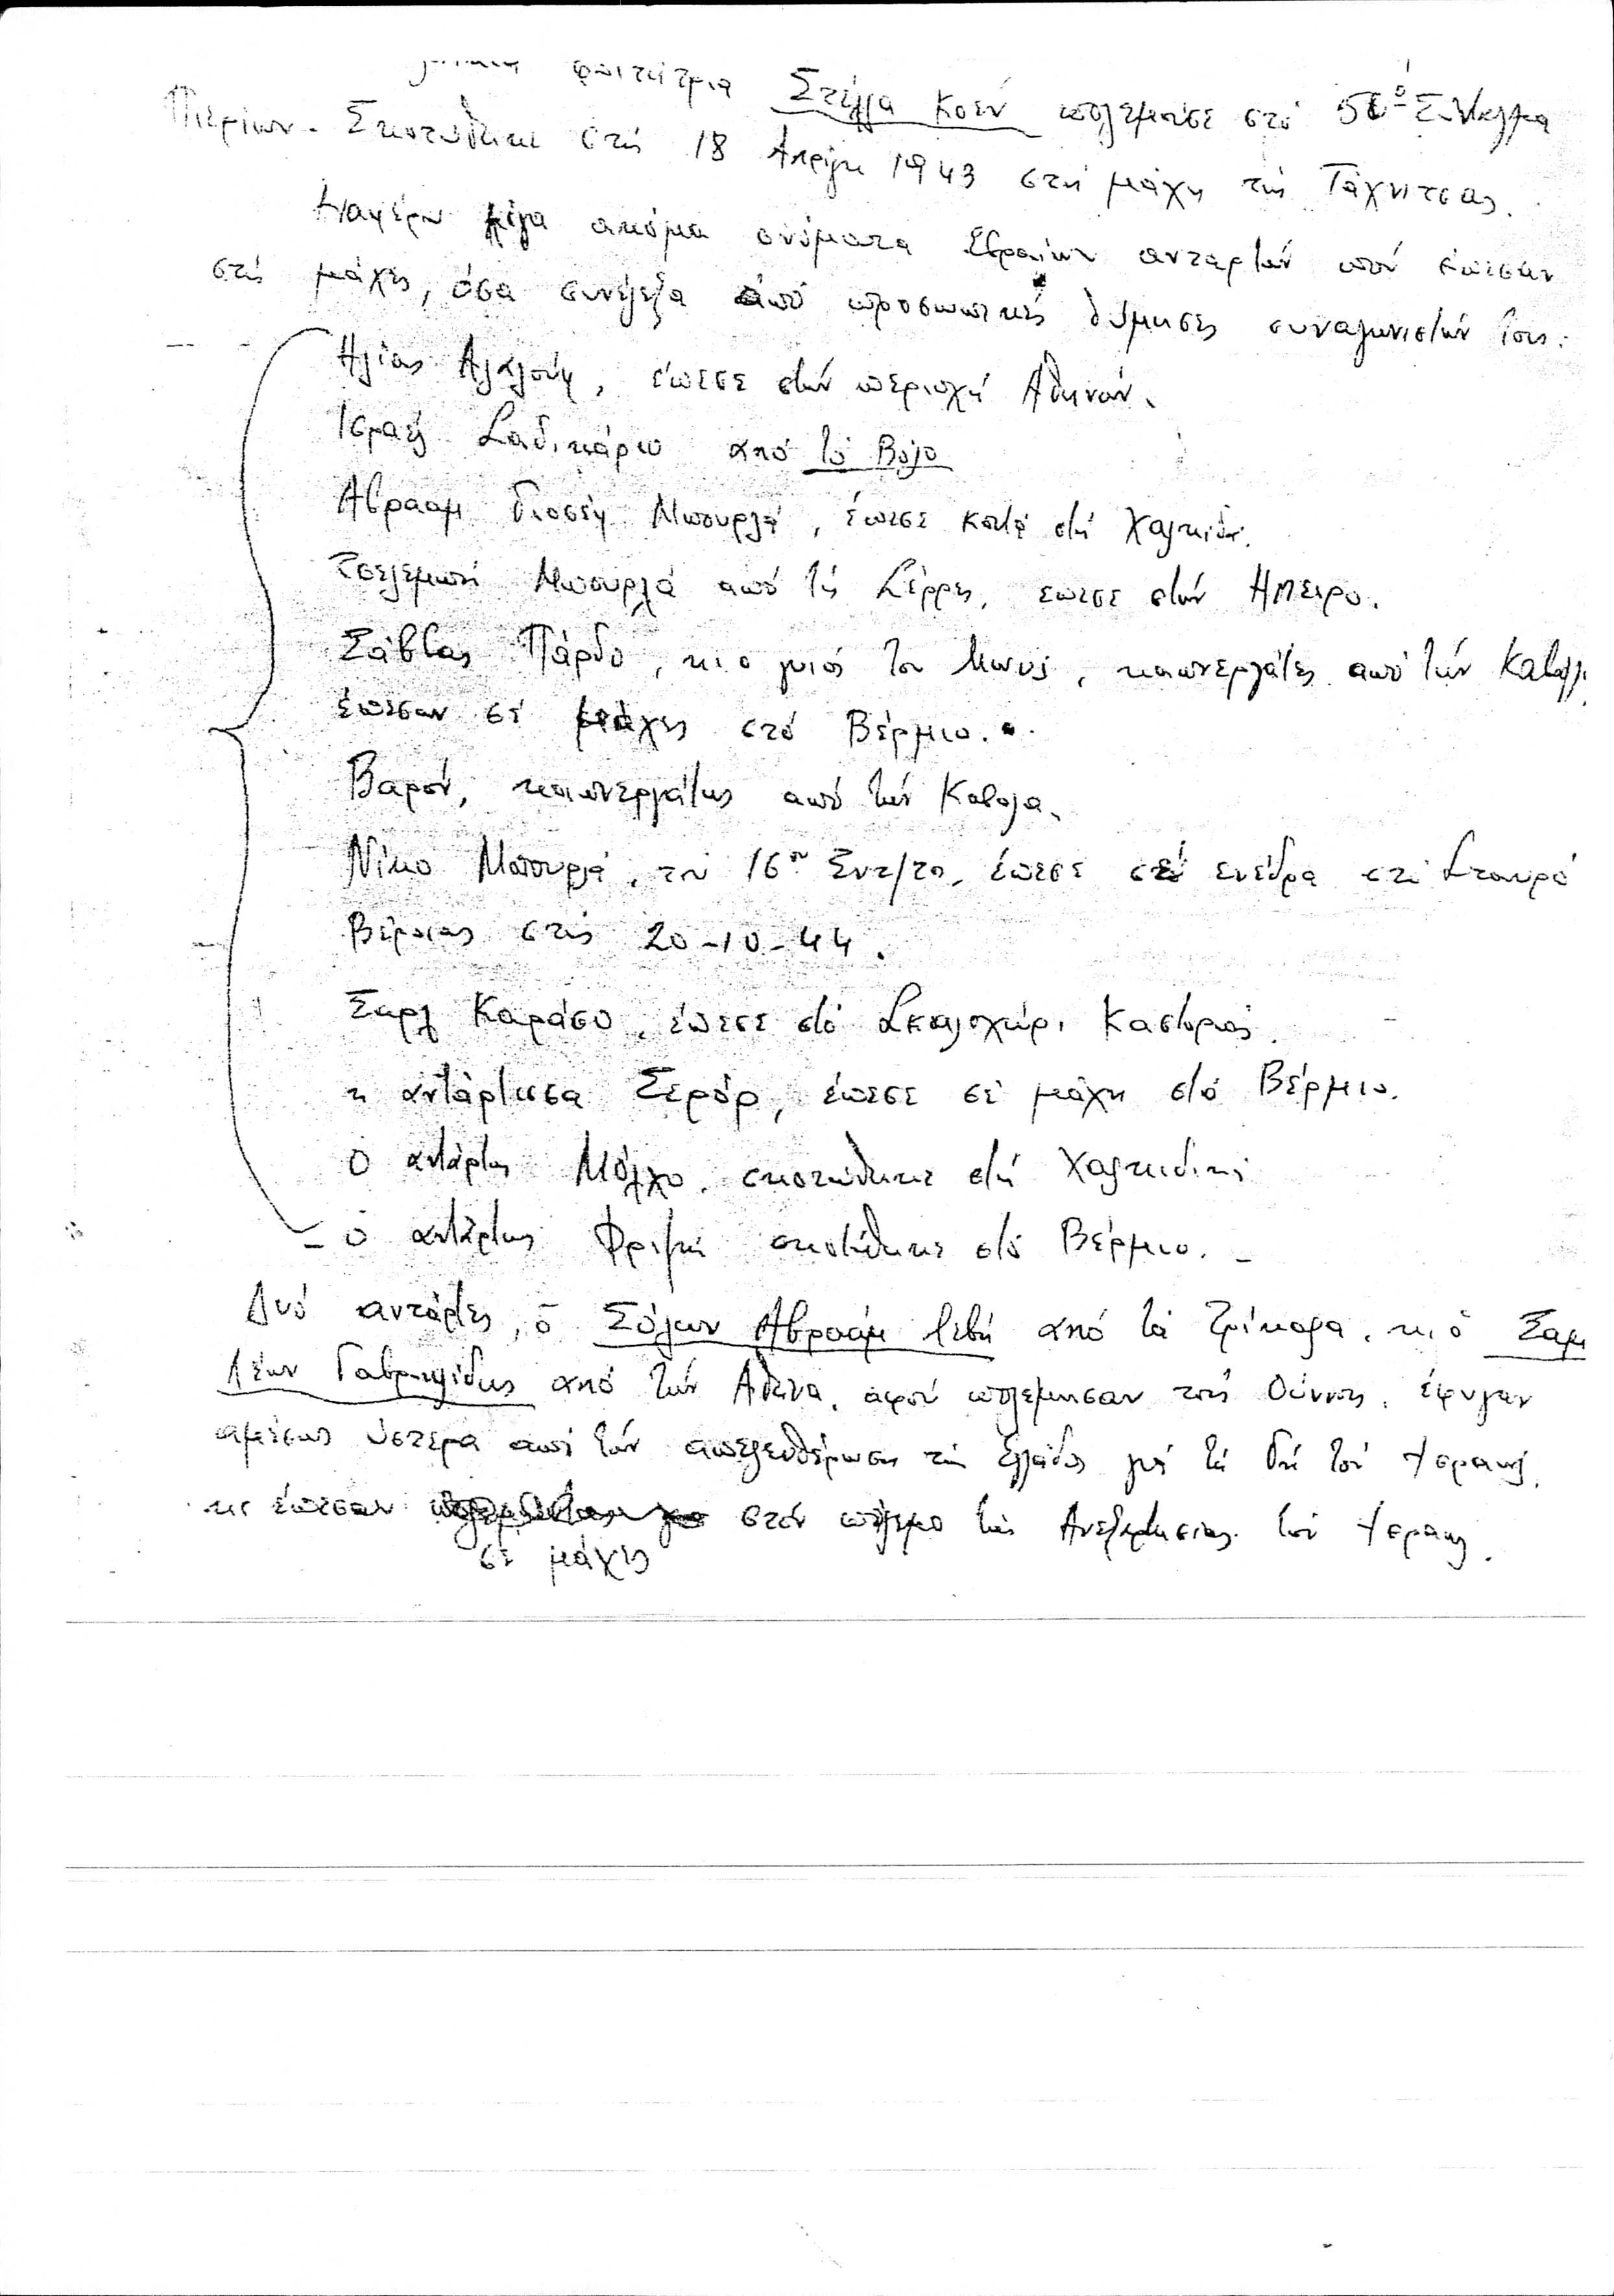 φοιτήτρια Στέλλα Κοέν πολέμησε στό 50ό Σύνταγμα
Πιερίων. Σκοτώθηκε στίς 18 Απρίλη 1943 στή μάχη τής
Αναφέρω λίγα ακόμα ονόματα Εβραίων ανταρτών πού έπεσαν
στίς μάχες, όσα συνέλεξα από προσωπικές θύμησες συναγωνιστών τους:
Ηλίας Αλαλούφ, έπεσε στήν περιοχή Αθηνών.
Ισραέλ Σαδικάριο από τό Βόλο
Αβραάμ Γιοσέφ Μπουρλά, έπεσε κοντά στή Χαλκίδα.
Τσελεμπή Μπουρλά από τίς Σέρρες, έπεσε στήν Ηπειρο.
Σάββας Πάρδο, κι ο γιός του καπνεργάτες από τήν
έπεσαν σέ μάχες στό Βέρμιο.
Βαρόν, καπνεργάτης από τήν Καβάλα.
Νίκο Μπουρλά, τού 16ου Συντ/τος, έπεσε σέ ενέδρα στό Σταυρό
Βέροιας στίς 20-10-44.
Σαρλ Καράσο, έπεσε στό Σκαλοχώρι Καστοριάς.
η αντάρτισσα Σερόρ, έπεσε σέ μάχη στό Βέρμιο.
ο αντάρτης Μόλχο, σκοτώθηκε στή Χαλκιδική
– ο αντάρτης Φριζή σκοτώθηκε στό Βέρμιο. –
Δυό αντάρτες, ό Σόλων Αβραάμ Λεβή από τά Τρίκαλα, κι ό Σαμ
Λέων Γαβριηλίδης από τήν Αθήνα, αφού πολέμησαν τούς Ούννους, έφυγαν
αμέσως ύστερα από τήν απελευθέρωση τής Ελλάδος γιά τή Γή τού Ισραήλ,
κι έπεσαν στόν πόλεμο τής Ανεξαρτησίας τού Ισραήλ.
σέ μάχες